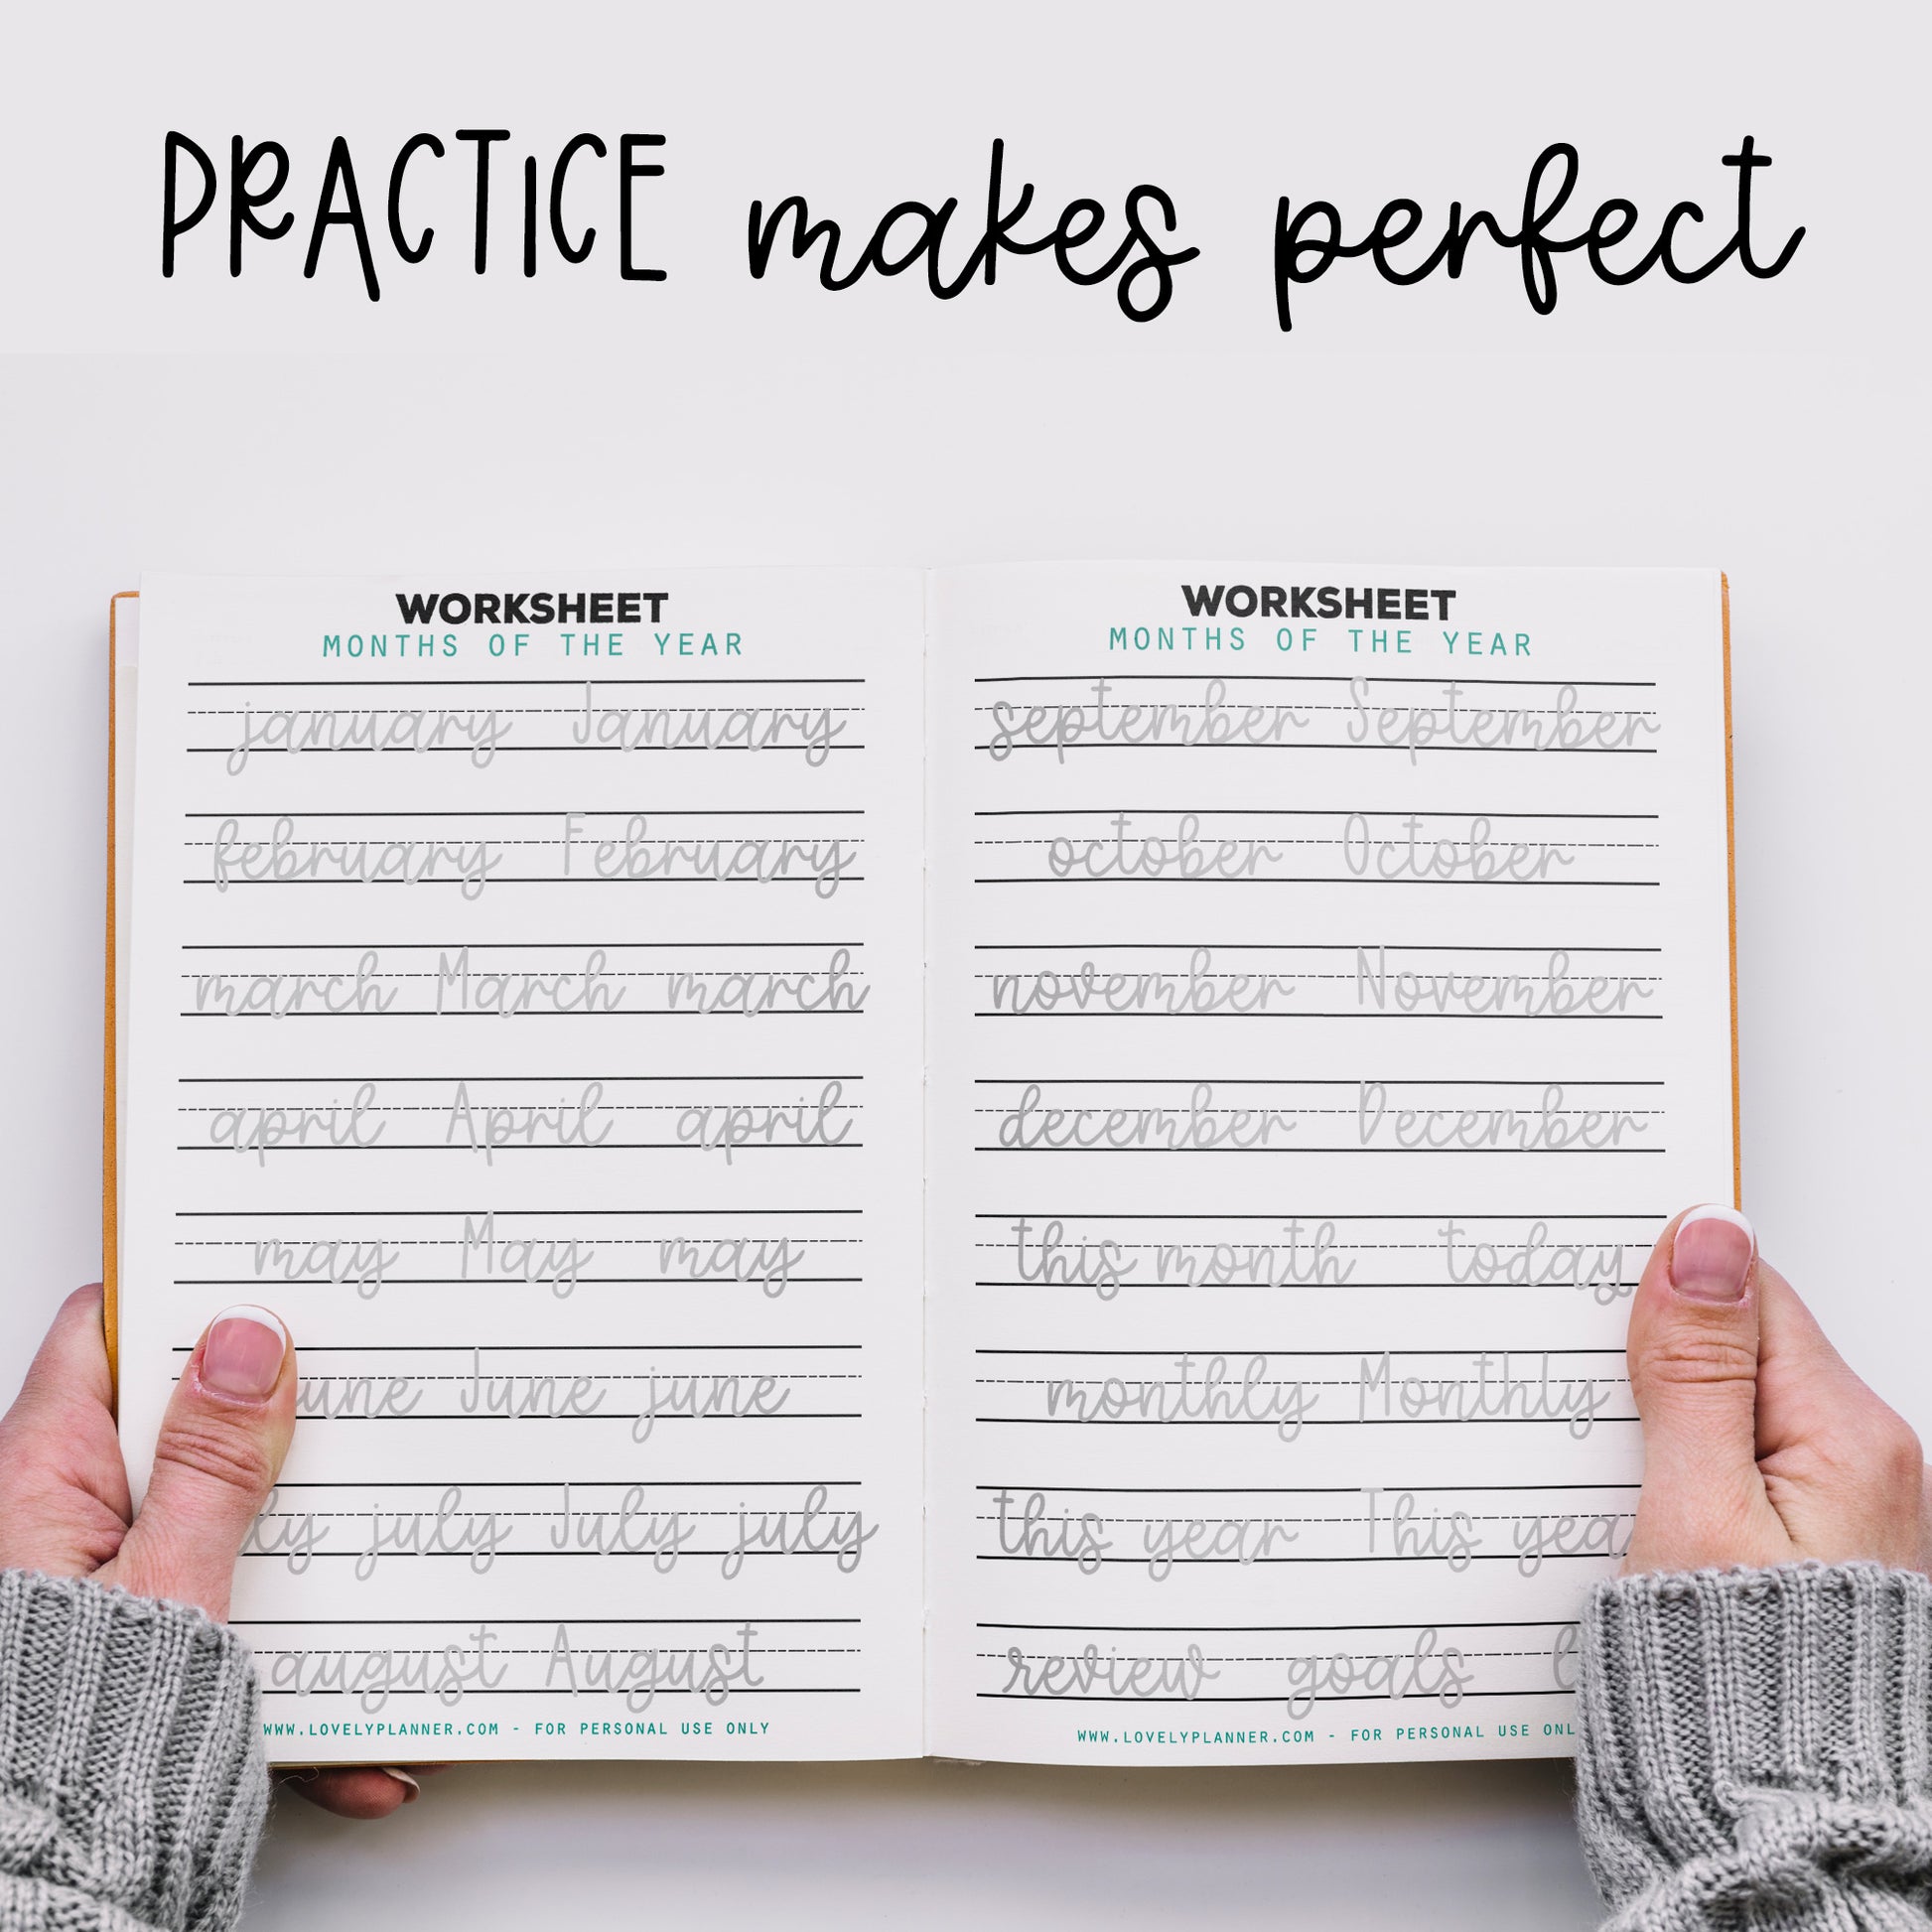 PRACTICE makes perfect
WORKSHEET
MONTHS OF THE YEAR
january January
february February
march March march
april April april
may May may
June june
july July july
august August
WWW.LOVELYPLANNER.COM - FOR PERSONAL USE ONLY
WORKSHEET
MONTHS OF THE YEAR
september September
october October
november November
december December
this month today
monthly Monthly
this year This
review goals
WWW.LOVELYPLANNER.COM - FOR PERSONAL USE